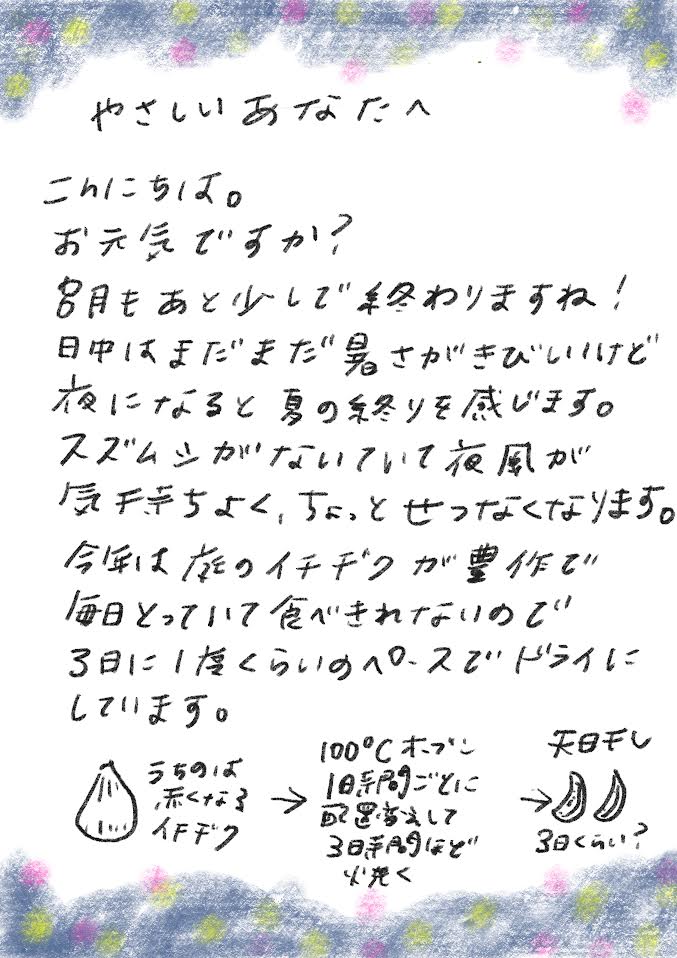 やさしいあなたへ
こんにちは。
お元気ですか?
8月もあと少しで終わりますね!
日中はまだまだ暑さがきびしいけど
夜になると夏の終りを感じます。
スズムシがないていて夜風が
気持ちよく、ちょっとせつなくなります。
今年は庭のイチヂクが豊作で
毎日とっていて食べきれないので
3日に1度くらいのペースでドライに
しています。
うちのは
赤くなる
イチヂク
→
100°Cオーブン
1時間ごとに
配置変えして
3時間ほど
焼く
→
天日干し
3日くらい?